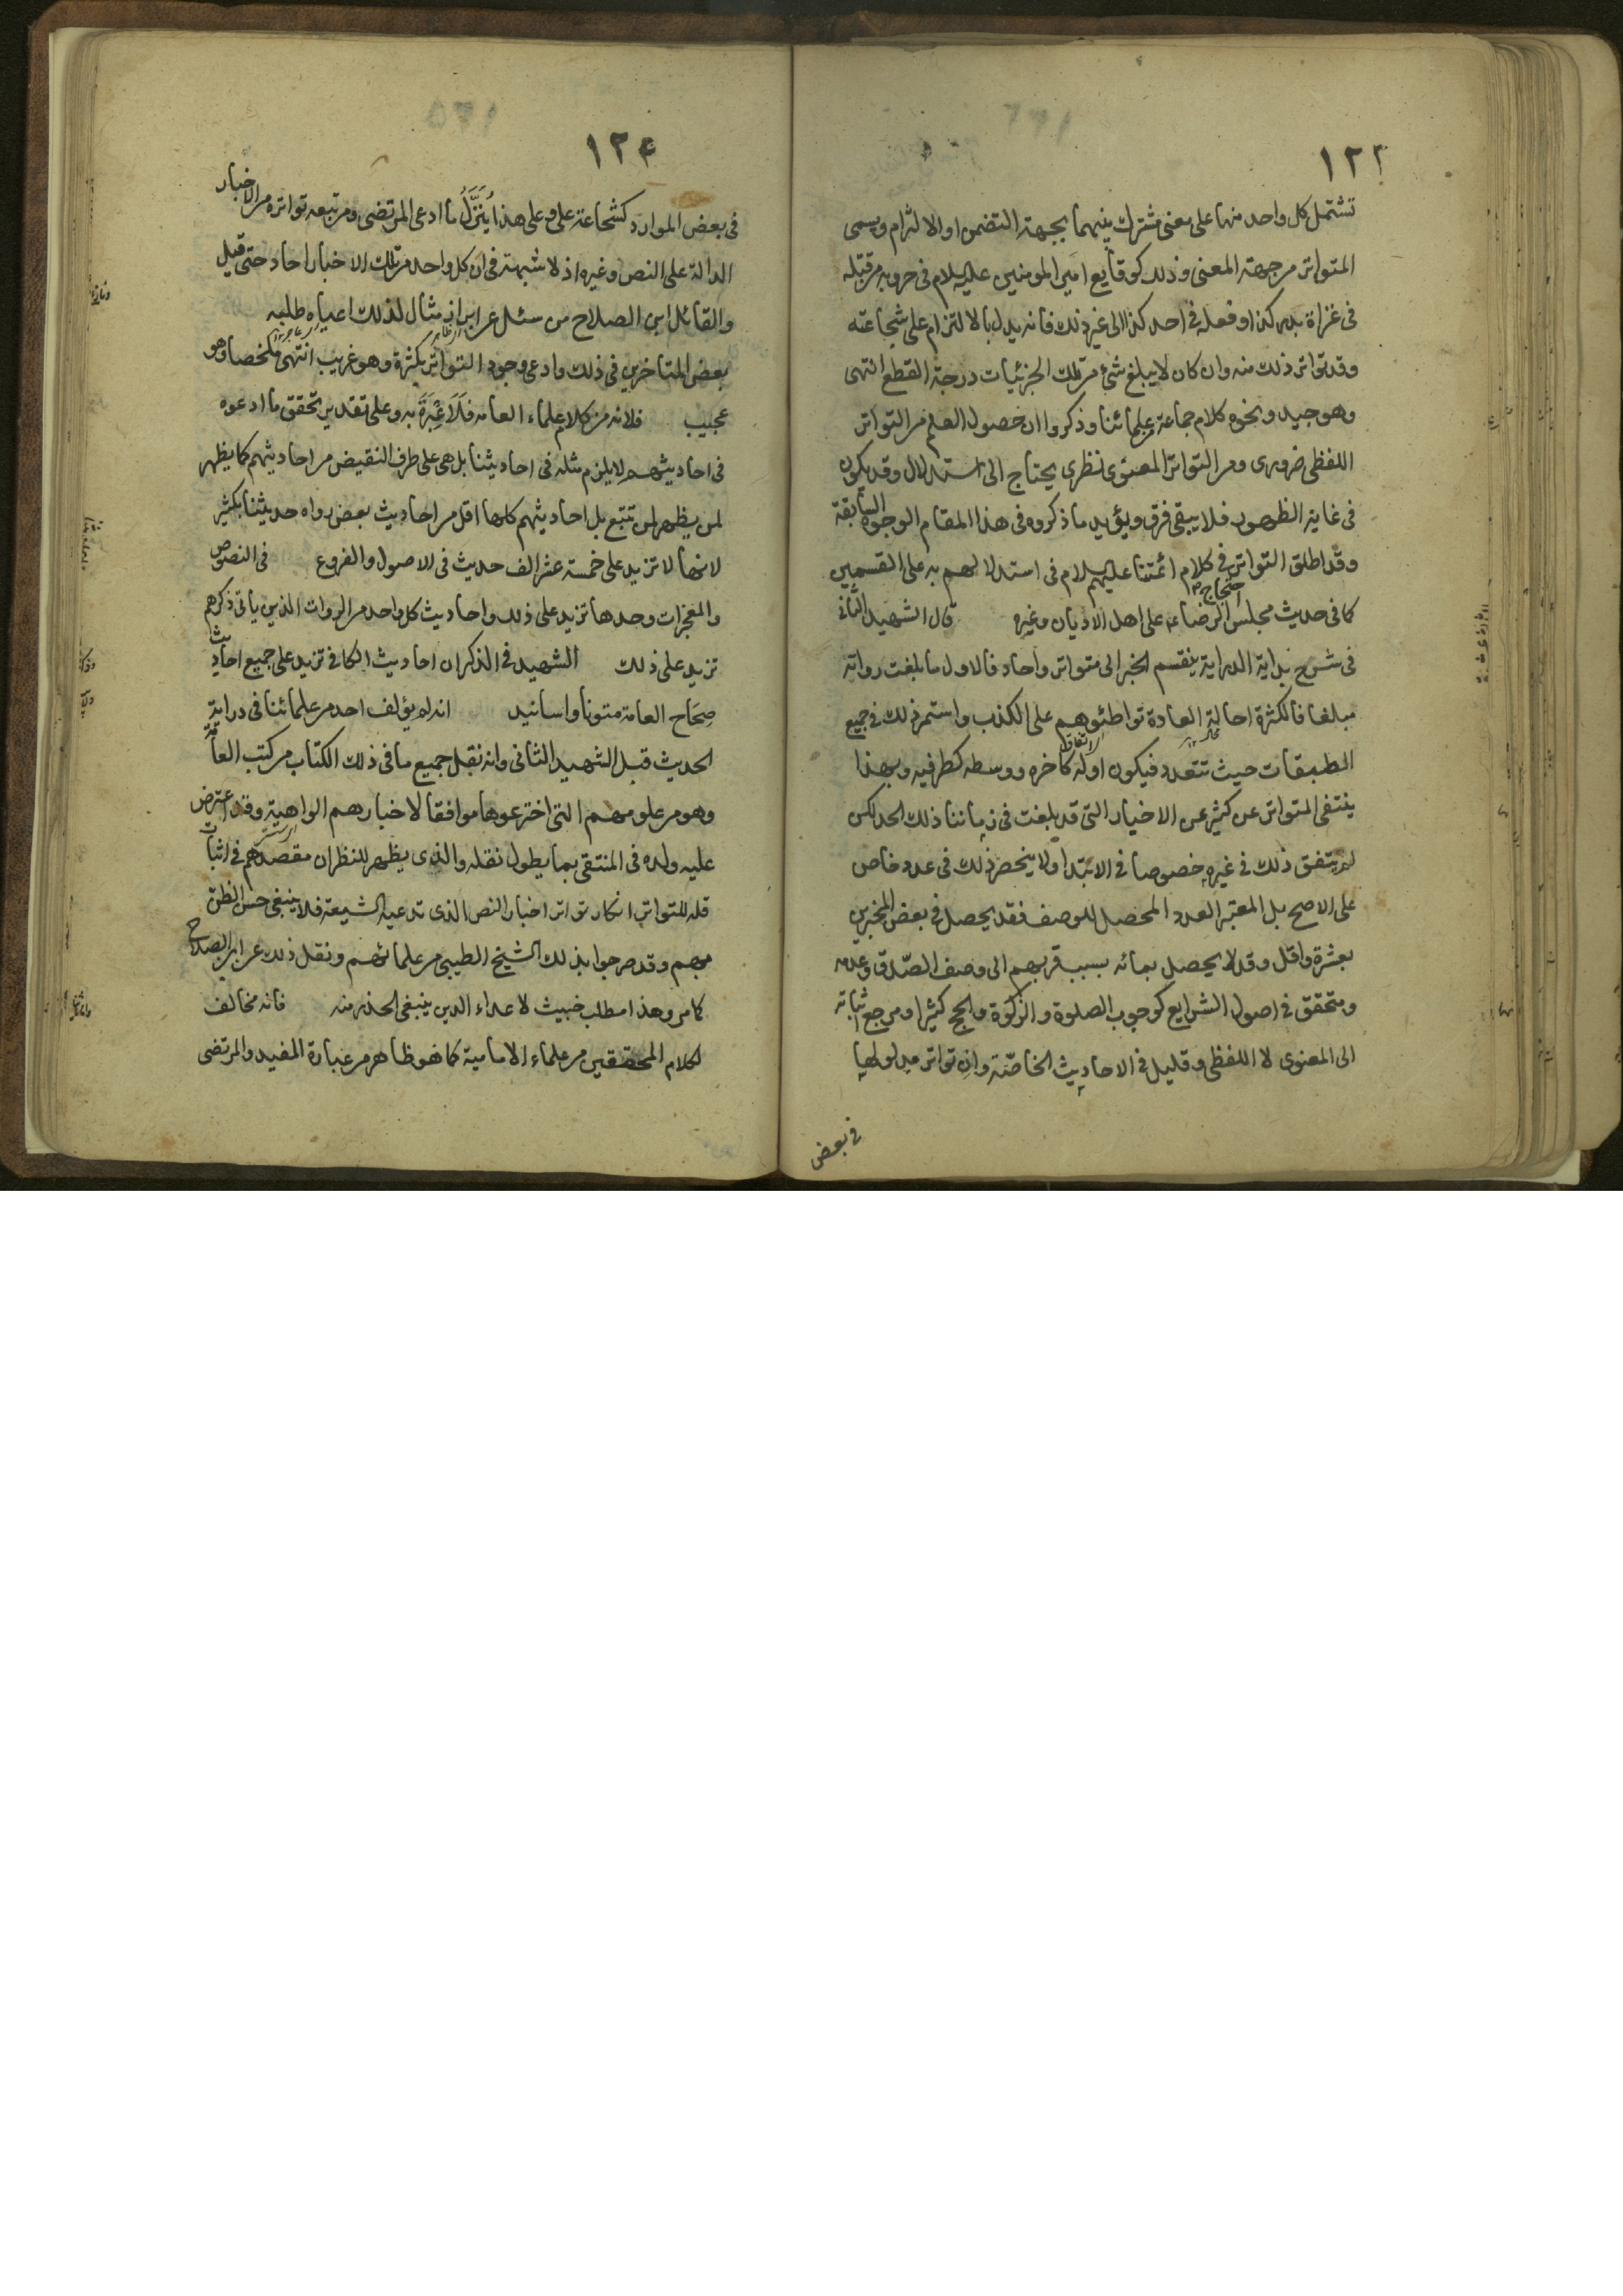 ١٢٣
تشتمل كل واحد منها على معنى مشترك بينهما بجهة التضمن او الالتزام ويسمى
المتواتر من جهة المعنى وذلك كوقايع امير المومنين عليه السلام فى حروبه من قتله
فى غزاة بدر كذا وفعله فى احد كذا الى غير ذلك فانه يدل بالالتزام على شجاعته
وقد تواتر ذلك منه وان كان لا يبلغ شئ من تلك الجزئيات درجة القطع انتهى
وهو جيد ونحوه كلام جماعة من علمائنا وذكروا ان حصول العلم من التواتر
اللفظى ضرورى ومن التواتر المعنوى نظرى يحتاج الى استدلال وقد يكون
فى غاية الظهور فلا يبقى فرق ويؤيد ما ذكروه فى هذا المقام الوجوه السابقة
وقد اطلق التواتر فى كلام ائمتنا عليهم السلام فى استدلالهم به على القسمين
كما فى حديث مجلس احتجاج الرضا ع على اهل الاديان وغيره قال الشهيد الثانى
فى شرح بداية الدراية ينقسم الخبر الى متواتر واحاد فالاول ما بلغت رواته
مبلغا فالكثرة احالة العادة تواطئوهم على الكذب واستمر ذلك فى جميع
الطبقات حيث تتعدد فيكون اوله كاخره ووسطه كطرفيه وبهذا
ينتفى المتواتر عن كثير من الاخبار التى قد بلغت فى زماننا ذلك الحد لكن
لم يتفق ذلك فى غيره خصوصا فى الابتدا ولا ينحصر ذلك فى عدد خاص
على الاصح بل المعتبر العدد المحصل للوصف فقد يحصل فى بعض المخبرين
بعشرة واقل وقد لا يحصل بمائه بسبب قربهم الى وصف الصدق وعدمه
ومتحقق فى اصول الشرايع كوجوب الصلوة والزكوة والحج كثيرا ومرجع اثباته
الى المعنوى لا اللفظى وقليل فى الاحاديث الخاصة وان تواتر مدلولها
فى بعض
١٢٤
فى بعض الموارد كشجاعة على وعلى هذا ينزل ما ادعى المرتضى ومن تبعه تواتره من الاخبار
الدالة على النص وغيره اذ لا شبهة فى ان كل واحد من تلك الاخبار احاد حتى قيل
والقائل ابن الصلاح من سئل عن ابراز مثال لذلك اعياه طلبه
بعض المتاخرين فى ذلك وادعى وجود التواتر بكثرة وهو غريب انتهى ملخصا وهو
عجيب فلانه من كلام علماء العامه فلا عبرة به وعلى تقدير تحقق ما ادعوه
فى احاديثهم لا يلزم مثله فى احاديثنا بل هى على طرف النقيض من احاديثهم كما يظهر
لمن يظهر لمن تتبع بل احاديثهم كلها اقل من احاديث بعض رواه حديثنا بكثير
لانها لا تزيد على خمسة عشر الف حديث فى الاصول والفروع فى النصوص
والمعجزات وحدها تزيد على ذلك واحاديث كل واحد من الروات الذين ياتى ذكرهم
تزيد على ذلك الشهيد فى الذكر ان احاديث الكافى تزيد على جميع احاديث
صحاح العامة متونا واسانيد انه لم يؤلف احد من علمائنا فى دراية
الحديث قبل الشهيد الثانى وانه نقل جميع ما فى ذلك الكتاب من كتب العامة
وهو من علومهم التى اخترعوها موافقا لاخبارهم الواهية وقد اعترض
عليه ولده فى المنتقى بما يطول نقله والذى يظهر للنظر ان مقصدهم فى اثبات
قلة للتواتر انكار تواتر اخبار النص الذى تدعيه الشيعة فلا ينبغى حسن الظن
بهم وقد صرحوا بذلك الشيخ الطيبى من علمائهم ونقل ذلك عن ابن الصلاح
كما مر وهذا مطلب خبيث لاعداء الدين ينبغى الحذر منه فانه مخالف
لكلام المحققين من علماء الامامية كما هو ظاهر من عبارة المفيد والمرتضى